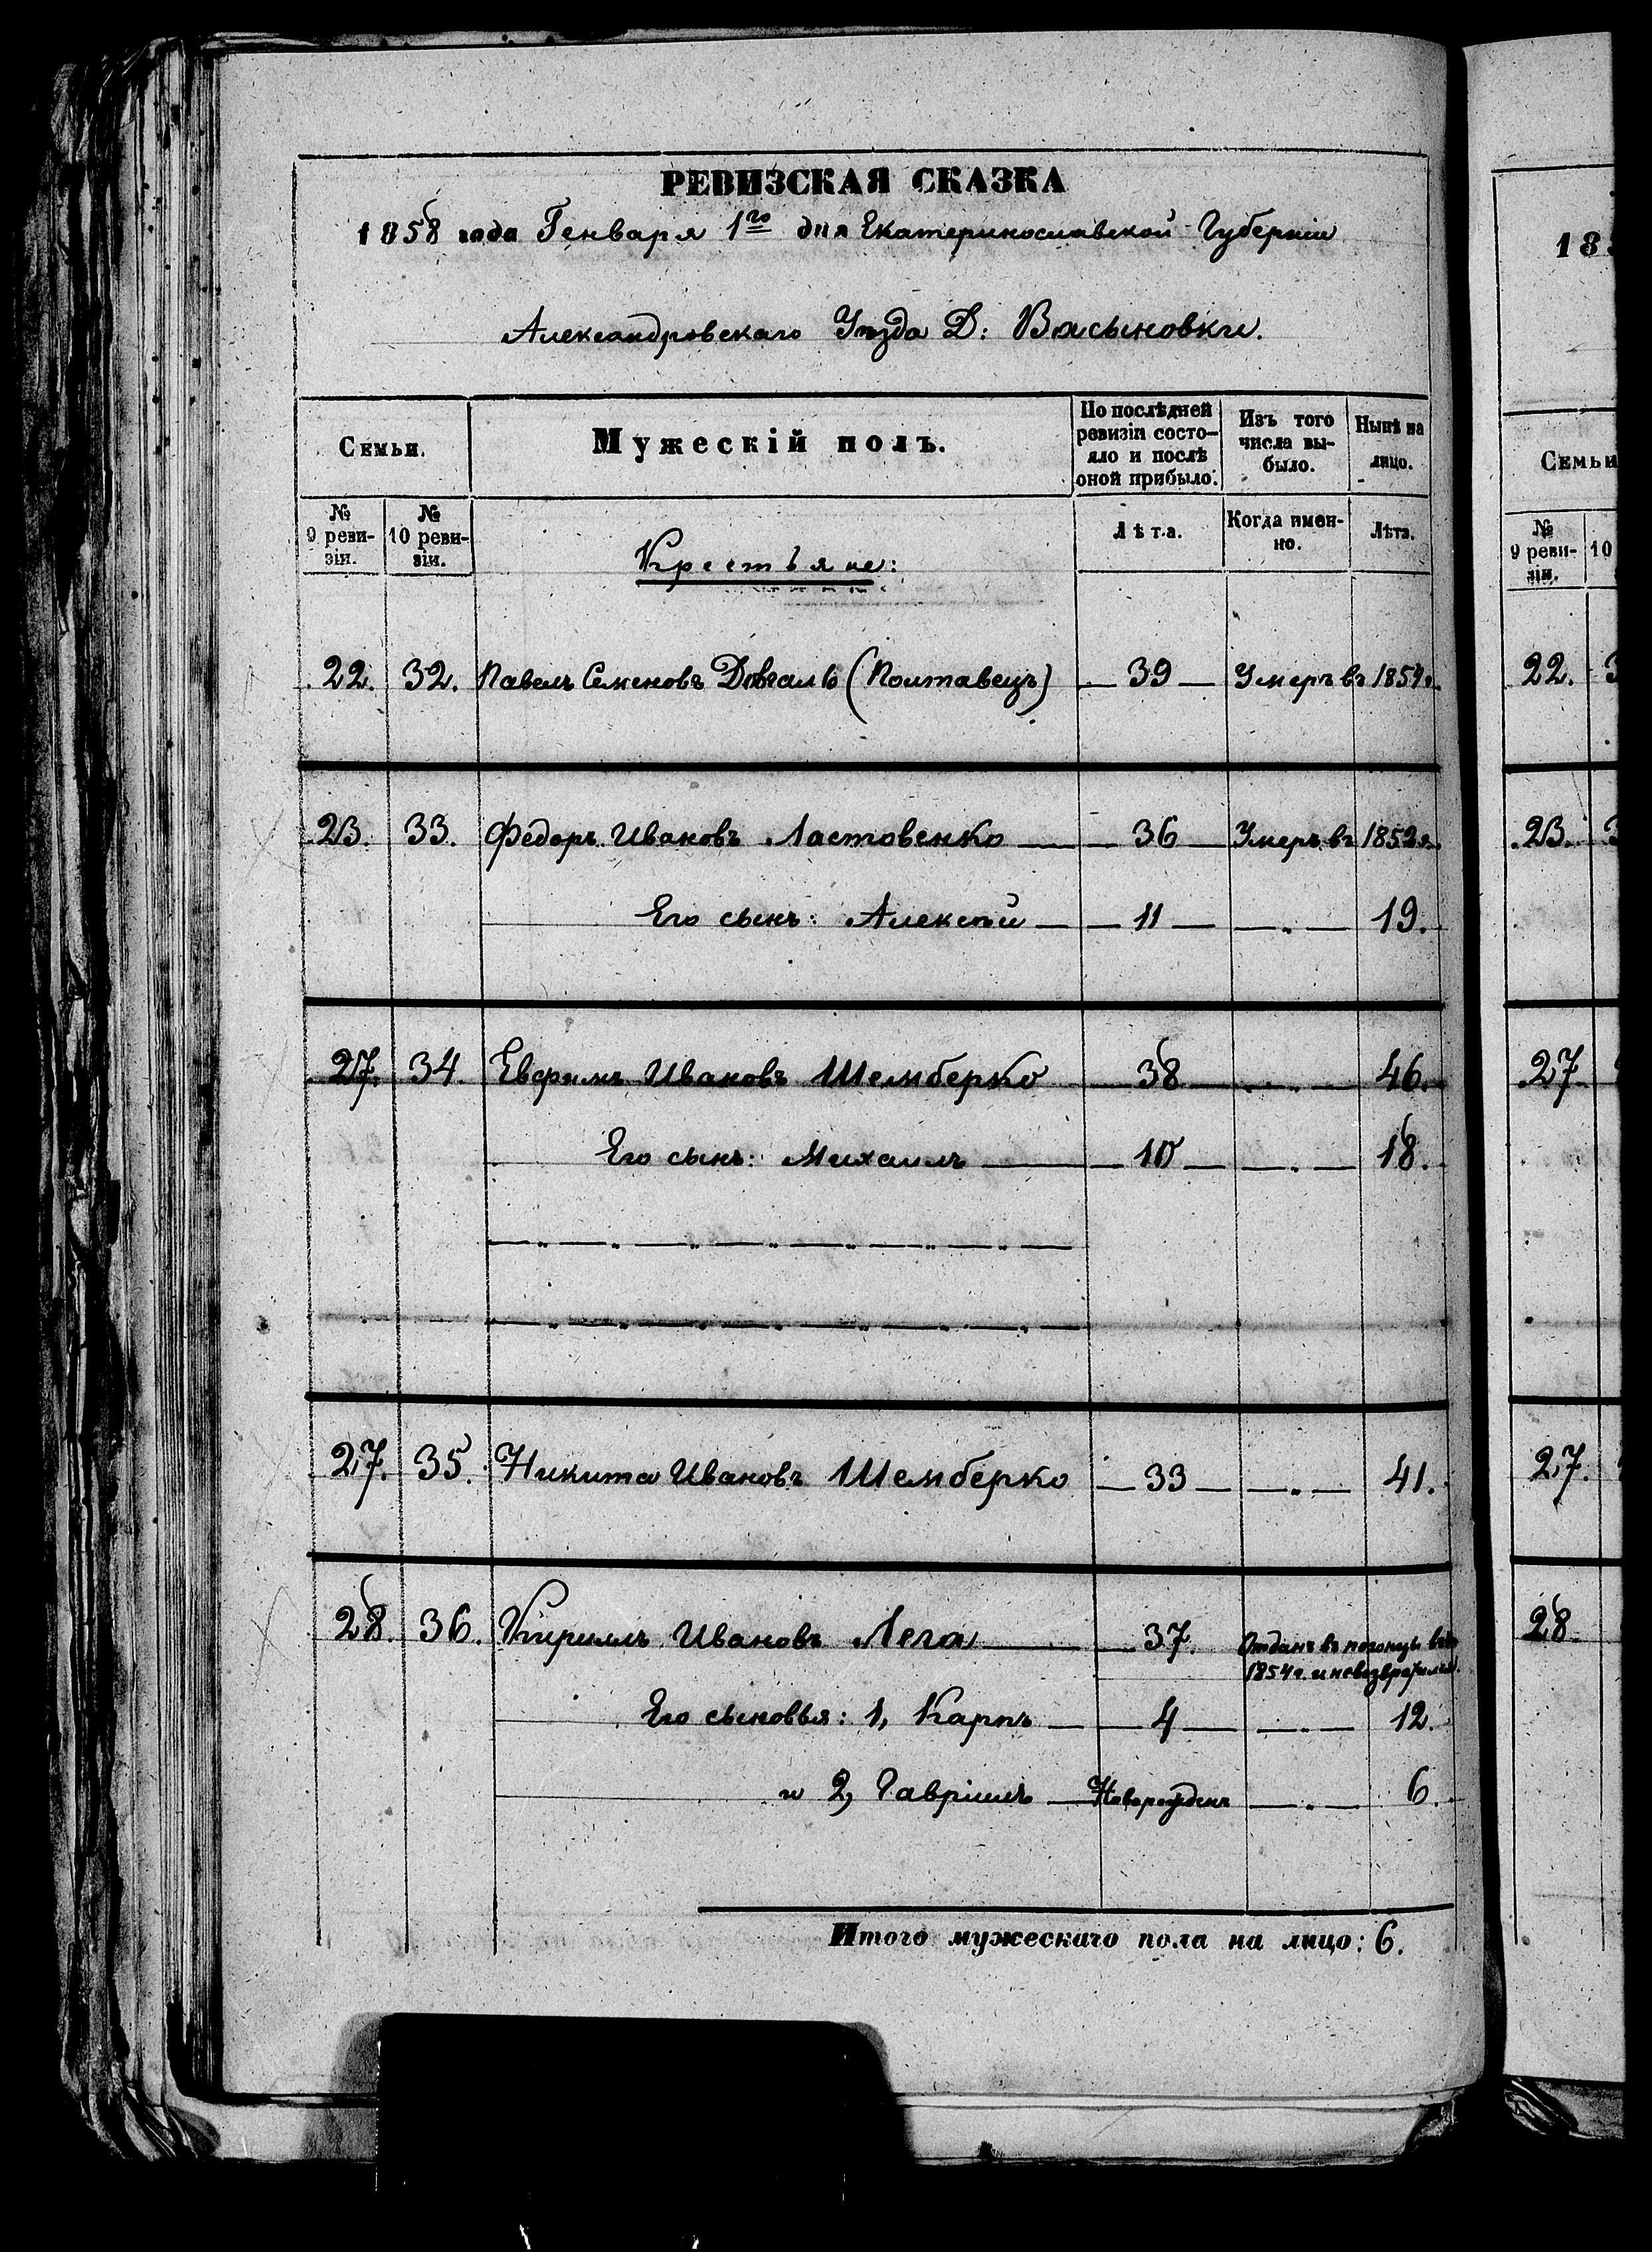 РЕВИЗСКАЯ СКАЗКА
1858 года Генваря 1го дня Екатеринославской Губерніи
Александровскаго Уѣзда Д: Васыновки.
Семьи.
Мужескій полъ.
По послѣдней ревизіи состояло и послѣ оной прибыло.
Изъ того числа выбыло.
Нынѣ на лицо.
№ 9 ревизіи.
№ 10 ревизіи.
Крестьяне:
Лѣта.
Когда именно.
Лѣта.
22. 32. Павелъ Семеновъ Довгаль (Полтавецъ) — 39 — Умеръ въ 1854г.
23. 33. Федоръ Ивановъ Ластовенко — 36 — Умеръ въ 1852г.
Его сынъ: Алексѣй — 11 — „ — 19.
27. 34. Евфимъ Ивановъ Шемберко 38 — „ — 46.
Его сынъ: Михаилъ — 10 — „ — 18.
27. 35. Никита Ивановъ Шемберко — 33 — „ — 41.
28. 36. Кирилъ Ивановъ Лега — 37. Отданъ въ погонцы въ
1854г. и невозвратился.
Его сыновья: 1, Карпъ — 4 — „ — 12.
и 2, Гавріилъ — Новорожденъ — „ — 6.
Итого мужескаго пола на лицо: 6.
18
Семьи
№ 9 ревизіи.
10
22.
23.
27.
27.
28.